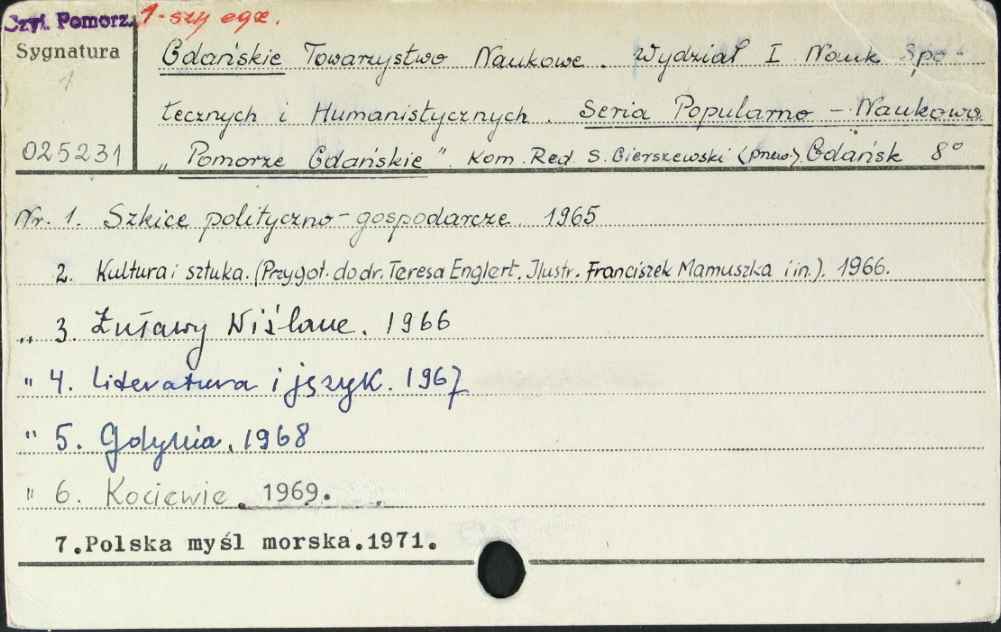 Czyt. Pomorz. 1-szy egz.
Sygnatura
1
025231
Gdańskie Towarzystwo Naukowe. Wydział I Nauk Spo-
łecznych i Humanistycznych. Seria Popularno-Naukowa
"Pomorze Gdańskie". Kom. Red. S. Gierszewski (przew). Gdańsk 8°
Nr. 1. Szkice polityczno-gospodarcze 1965
2. Kultura i sztuka. (Przygot. do dr. Teresa Englert. Ilustr. Franciszek Mamuszka i in.). 1966.
" 3. Żuławy Wiślane. 1966
" 4. Literatura i język. 1967
" 5. Gdynia. 1968
" 6. Kociewie. 1969.
7. Polska myśl morska. 1971.